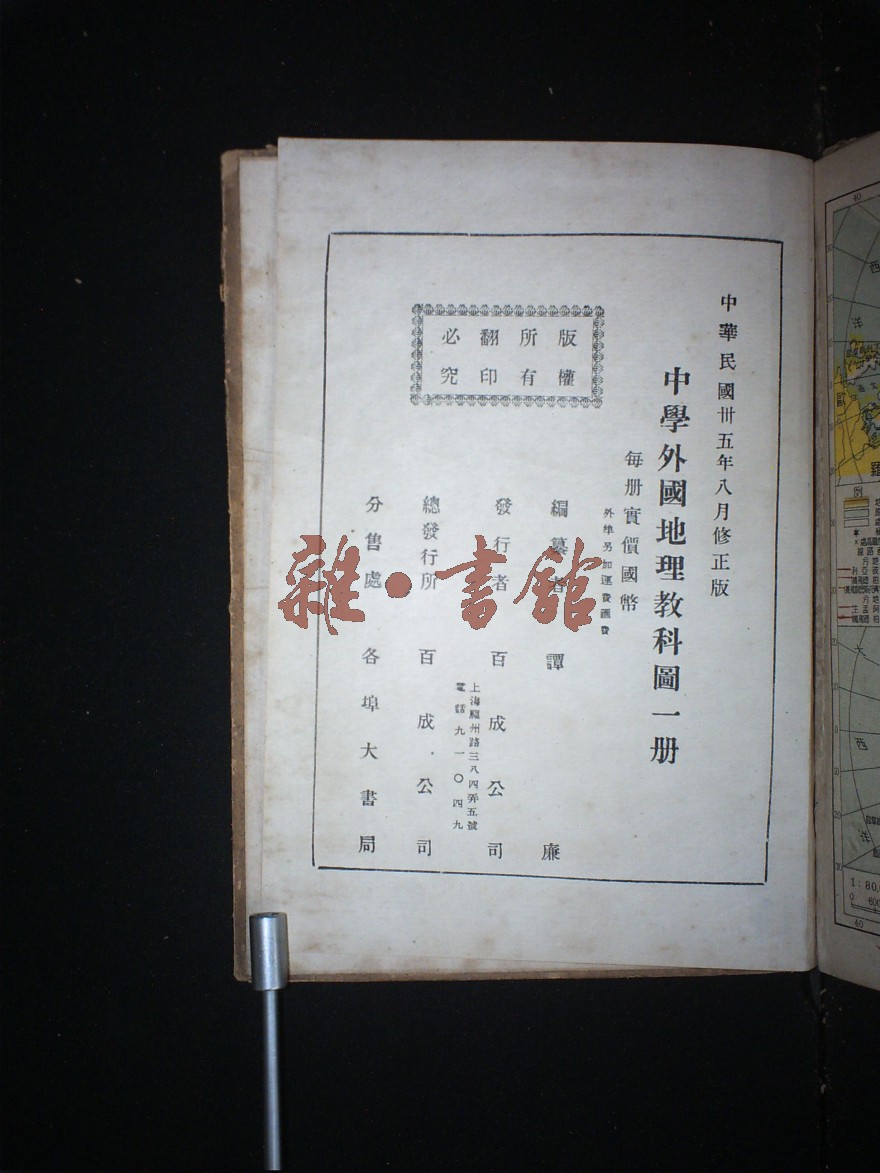 中華民國卅五年八月修正版
中學外國地理教科圖一册
每册實價國幣
外埠另加運費匯費
版權
所有
翻印
必究
編纂者 譚廉
發行者 百成公司
上海福州路三八四弄五號
電話九一〇四九
總發行所 百成公司
分售處 各埠大書局
雜·書館
40
西
洋
例
西
洋
1:80,
0 600
40